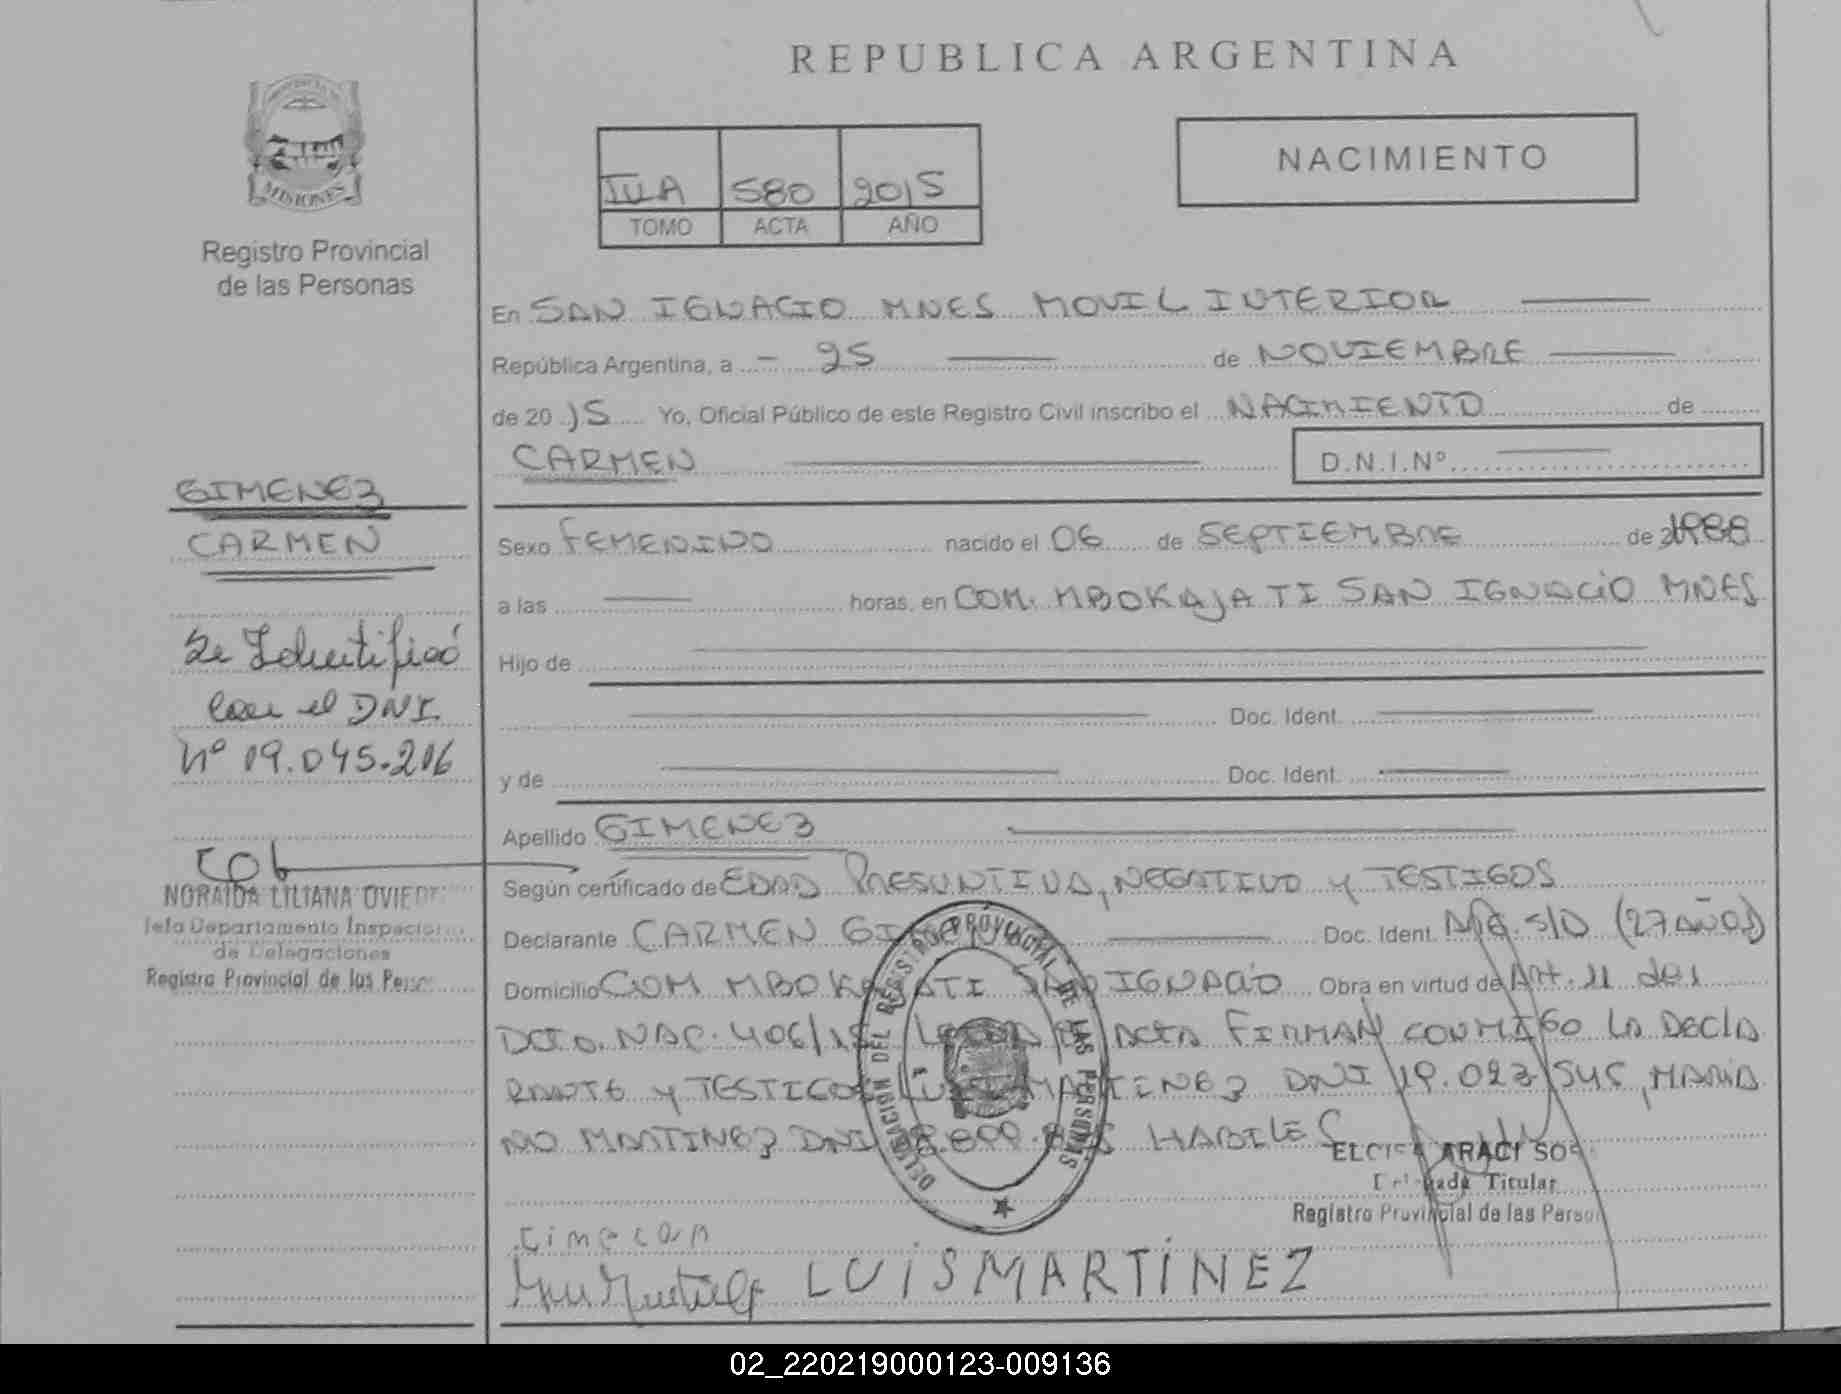 REPUBLICA ARGENTINA
NACIMIENTO
580 2015
TOMO ACTA AÑO
MISIONES
Registro Provincial
de las Personas
En SAN IGNACIO MNES MOVIL INTERIOR
República Argentina, a - 25 de NOVIEMBRE
de 20 15 Yo, Oficial Público de este Registro Civil inscribo el NACIMIENTO de
CARMEN D.N.I.Nº
GIMENEZ
CARMEN
Se Identificó
con el DNI
Nº 19.045.216
NORAIDA LILIANA OVIEDO
Jefa Departamento Inspeccion
de Delegaciones
Registro Provincial de las Perso
Sexo FEMENINO nacido el 06 de SEPTIEMBRE de 1988
a las horas, en COM. MBOKAJA TI SAN IGNACIO MNES
Hijo de
Doc. Ident.
y de Doc. Ident.
Apellido GIMENEZ
Según certificado de EDAD PRESUNTIVA, NEGATIVO y TESTIGOS
Declarante CARMEN Doc. Ident. S/D (27 AÑOS)
Domicilio COM MBOKAJATI SAN IGNACIO Obra en virtud de Art. 11 del
DCTO. NAC. 406/15 ACTA FIRMAN CONMIGO LA DECLA
RANTE y TESTIGOS LUIS MARTINEZ DNI 19.023 MARIA
NO MARTINEZ DNI HABILES
DELEGACION DEL REGISTRO PROVINCIAL DE LAS PERSONAS
ARACI
Titular
Registro Provincial de las Person
LUISMARTINEZ
02_220219000123-009136